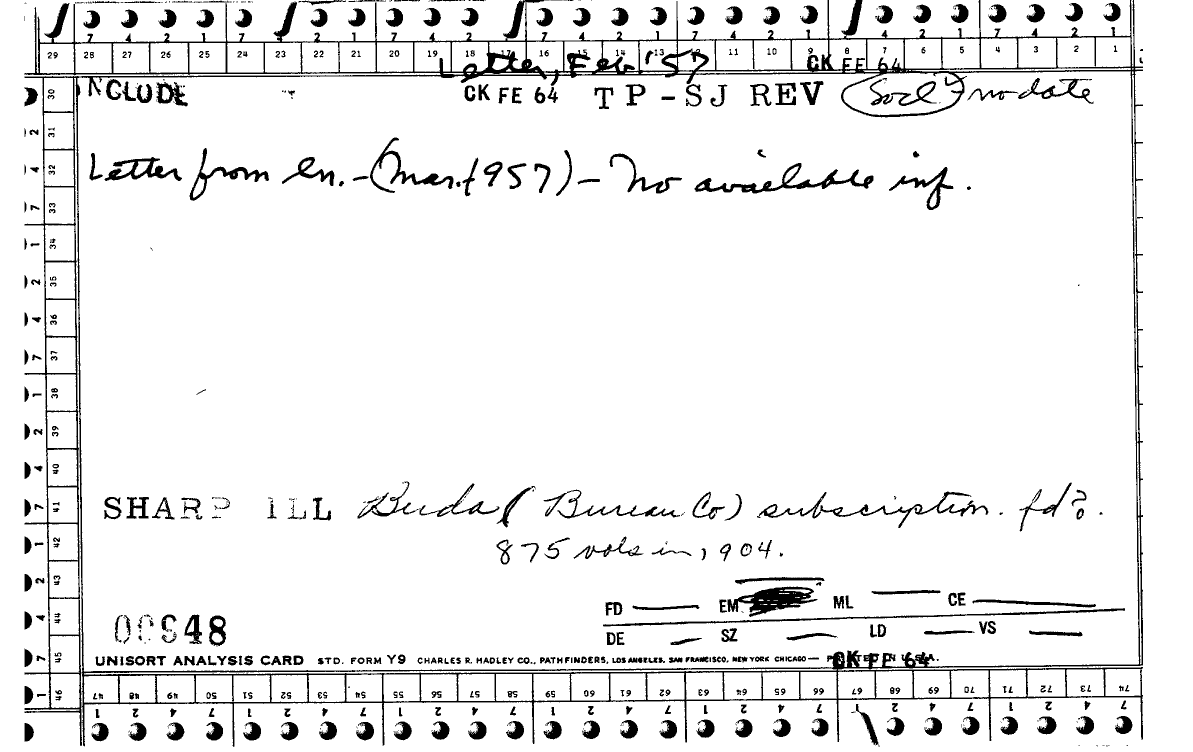 7 4 2 1 7 2 1 7 4 2 1 7 4 2 1 7 4 2 1 7 4 2 1 7 4 2 1
29 28 27 26 25 24 23 22 21 20 19 18 17 16 15 14 13 12 11 10 9 8 7 6 5 4 3 2 1
Letter, Feb. '57 CK FE 64
NCLUDE CK FE 64 TP-SJ REV (Socl) no date
Letter from ln. - (Mar. 1957) - No available inf.
30 31 32 33 34 35 36 37 38 39 40 41 42 43 44 45 46
SHARP ILL Buda (Bureau Co) subscription. fd?.
875 vols in 1904.
FD EM ML CE
DE SZ LD VS
00948
UNISORT ANALYSIS CARD STD. FORM Y9 CHARLES R. HADLEY CO., PATHFINDERS, LOS ANGELES, SAN FRANCISCO, NEW YORK CHICAGO— PRINTED IN U.S.A.
CK FE 64
47 48 49 50 51 52 53 54 55 56 57 58 59 60 61 62 63 64 65 66 67 68 69 70 71 72 73 74
1 2 4 7 1 2 4 7 1 2 4 7 1 2 4 7 1 2 4 7 1 2 4 7 1 2 4 7